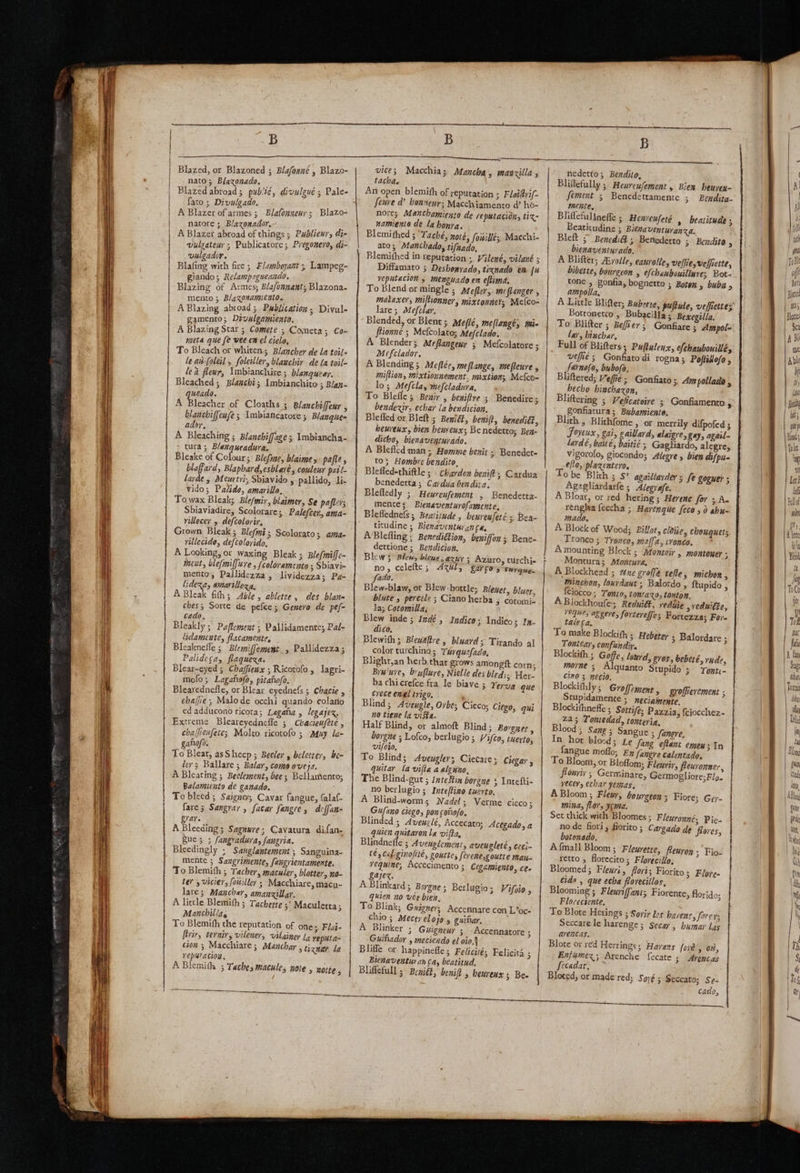 B
Blazed, or Blazoned ; Blasonné , Blazo-
nato ; Blazonado.
Blazed abroad ; publié, divulgué ; Pale-
sato ; Divulgado.
A Blazer of armes ; Blasonneur ; Blazo-
natore ; Blazonador.
A Blazer abroad of things ; Publieur, di-
vulgateur ; Publicatore ; Pregonero, di-
vulgador.
Blasing with fire ; Flamboyant ; Lampeg-
giando ; Relampagueando.
Blazing of Armes ; Blasonnement ; Blazona-
mento ; Blazonamiento.
A Blazing abroad ; Publication ; Divul-
gamento ; Divulgamiento.
A Blazing Star ; Comete ; Cometa ; Co-
meta que se vee en el cielo.
To Bleach or whiten ; Blancher de la toil-
le au soleil ,
le à fleur, Imbianchire ; blanquear.
Bleached ; Blanchi ; Imbianchito ; Blan-
queado.
A Bleacher of Cloaths ; Blanchisseur ,
blanchisseuse ; Imbiancatore ; Blanquea-
dor.
A Bleaching ; Blanchissage ; Imbiancha-
tura ; Blanqueadura.
Bleake of Colour ; Blesme, blaime , pasle ,
blaffard, Blaphard,
larde , Meurtri ; Sbiavido , pallido, li-
vido ; Palido, amarillo.
To wax Bleak ; Blesmir, blaimer, Se paslir ;
Sbiaviadire, Scolorare ; Palescer, ama-
rillecer , descolorir.
Grown Bleak ; Blesmi ; Scolorato ; ama-
rillecido, descolorido.
A Looking, or waxing Bleak ; Blesmisse-
ment, blesmissure , scoloramento ; Sbiavi-
mento, Pallidezza , lividezza ; Pa-
lideza, amarilleza.
A Bleak fish ; Able , ablette , des blan-
ches ; Sorte de pesce ; Genero de pes-
cado.
Bleakly ; Paslement ; Pallidamente ; Pal-
lidamente, flacamente.
Bleaknesse ; Blemissement , Pallidezza ;
Palideça, flaqueza.
Blear-eyed ; Chassieux ; Ricotoso , lagri-
moso ; Lagañoso, pitañoso.
Blearednesse, or Blear eyednes ; Chacie ,
chassie , Malo de occhi quando colano
ed adducono ricota ; Legaña , legajez.
Extreme Bleareyednesse ; Chacieuseté ,
Molto ricotoso ; Muy la-
gañoso.
To Blear, as Sheep ; Beeler , beleter, be-
ler ; Ballare ; Balar, como oveja.
A Bleating ; Beelement, bee ; Bellamento ;
Balamiento de ganado.
To bleed ; Saigner ; Cavar sangue, salas-
sare ; Sangrar , sacar sangre , desan-
grar.
A Bleeding ; Sagnure ; Cavatura di san-
gue ; sangradura, sangria.
Bleedingly ; Sanglantement ; Sanguina-
mente ; Sangrimente, sangrientamente.
To Blemish ; Tacher, maculer, blotter, no-
ter , vicier, souiller ; Macchiare, macu-
lare ; Manchar, amanzillar.
A little Blemish ; Tachette ; Maculetta ;
Manchilla.
To Blemish the reputation of one ; Flai-
strir, ternir, vilener, vilainer la reputa-
cion ; Macchiare ; Manchar , tiznar la
reputacion.
A Blemish ; Tache, macule, note , notte ,
B
vice ; Macchia ; Mancha , manzilla ,
tacha.
An open blemish of reputation ; Flaistris-
seure d' honneur ; Macchiamento d' ho-
nore ; Manchamiento de reputaciòn, tiz-
namiento de la honra.
Blemished ; Taché, noté, souillé ; Macchi-
ato ; Manchado, tiznado.
Blemished in reputation ; Vilené, vilané ;
Diffamato ; Deshonrado, tiznado en su
reputacion , menguado en estima.
To Blend or mingle ; Mesler, meslanger ,
malaxer, mistionner, mixtonner ; Mesco-
lare ; Mesclar.
Blended, or Blent ; Meslé, meslangé, mi-
stionné ; Mescolato ; Mesclado.
A Blender ; Meslangeur ; Mescolatore ;
Mesclador.
A Blending ; Meslée, meslange, mesleure ,
mistion, mixtionnement, mixtion ; Mesco-
lo ; Mescla, mescladura.
To Blesse ; Benir , benistre ; Benedire ;
bendezir, echar la bendicion.
Blessed or Blest ; Beniët, benist, benediët,
heureux, bien heureux ; Benedetto ; Ben-
dicho, bienaventurado.
A Blessed man ; Homme benit ; Benedet-
to ; Hombre bendito.
Blessed-thistle ; Chardon benist ; Cardua
benedetta ; Cardua bendita.
Blessedly ; Heureusement , Benedetta-
mente ; Bienaventurosamente.
Blessednesse ; Beatitude , heureuseté ; Bea-
titudine ; Bienaventurança.
A Blessing ; Benediction, benisson ; Bene-
dettione ; Bendicion.
Blew ; Blew, bleue, azur ; Azuro, turchi-
no, celeste ; Azul, garço , turque-
sado.
Blew-blaw, or Blew-bottle ; Bleuet, bluet,
blute , percele ; Ciano herba , cotomi-
la ; Cotomilla.
Blew inde ; Indé , Indico ; Indico ; In-
dico.
Blewish ; Bleuastre , bluard ; Tirando al
color turchino ; Turquesado.
Blight, an herb that grows amongst corn ;
Bru'ure, b'ussure, Nielle des bleds ; Her-
ba chi cresce fra le biave ; Yerva que
crece en el trigo.
Blind ; Aveugle, Orbe ; Cieco ; Ciego, qui
no tiene la vista.
Half Blind, or almost Blind ; Borgner ,
borgne ; Losco, berlugio ; Visco, tuerto,
visojo.
To Blind ; Aveugler ; Ciecare ; Cegar ,
quitar la vista a alguno.
The Blind-gut ; Intestin borgne ; Intesti-
no berlugio ; Intestino tuerto.
A Blind-worm ; Nadel ; Verme cieco ;
Gusano ciego, ponçoñoso.
Blinded ; Aveuglé, Accecato ; Acegado, a
quien quitaron la vista.
Blindnesse ; Aveuglement, aveugleté, ceci-
té, caliginosité, goutte, serene, goutte mau-
requine ; Accecimento ; Cegamiento, ce-
gajez.
A Blinkard ; Borgne ; Berlugio ; Visojo ,
quien no vèe bien.
To Blink ; Guigner ; Accennare con L'oc-
chio ; Mecer el ojo , guiñar.
A Blinker ; Guigneur ; Accennatore ;
Guiñador , meciendo el oio.
Blisse or happinesse ; Felicité ; Felicità ;
Bienaventurança, beatitud.
Blissefull ; Beniët, benist , heureux ; Be-
B
nedetto ; Bendito.
Blissefully ; Heureusement , Bien heureu-
sement ; Benedettamente ; Bendita-
mente.
Blissefullnesse ; Heureuseté , beatitude ;
Beatitudine ; Bienaventurança.
Blest ; Benediët ; Benedetto ; Bendito ,
bienaventurado.
A Blister ; Ævolle, eaurolle, vessie, vessiette,
bibette, bourgeon , eschauboüillure ; Bot-
tone , gonfia, bognetto ; Boton , buba ,
ampolla.
A Little Blister ; Bubette, pustule, vessiette ;
Bottonetto , Bubacilla ; Bexegilla.
To Blister ; Vessier ; Gonfiare ; Ampol-
lar, hinchar.
Full of Blisters ; Pustuleux, eschauboüillé,
vessié ; Gonfiato di rogna ; Postilloso ,
sarnoso, buboso.
Blistered ; Vessié ; Gonfiato ; Ampollado ,
hecho hinchazon.
Blistering ; Vessicatoire ; Gonfiamento ,
gonfiatura ; Bubamiento.
Blith, Blithsome , or merrily disposed ;
Joyeux, gai, gaillard, alaigre, gay, agail-
lardé, baité, baitié ; Gagliardo, alegre,
vigoroso, giocondo ; Alegre , bien dispu-
esto, plazentero.
To be Blith ; S' agaillarder ; se goguer ;
Agagliardarse ; Alegrase.
A Bloat, or red hering ; Herene sor ; A-
rengha seccha ; Harenque seco , ò ahu-
mado.
A Block of Wood ; Billot, clotie, chouquet ;
Tronco ; Tronco, massa, tronco.
A mounting Block ; Montoir , montouer ;
Montura ; Montura.
A Blockhead ; Une grosse teste, michon ,
minchon, lourdaut ; Balordo , stupido ,
sciocco ; Tonto, tontazo, tonton.
A Blockhouse ; Reduiët, reduite , reduiëte,
roque, aggere, forteresse ; Fortezza ; For-
taleça.
To make Blockish ; Hebeter ; Balordare ;
Tontear, confundir.
Blockish ; Goffe, lourd, gros, bebeté, rude,
morne ; Alquanto Stupido ; Tonti-
cino , necio.
Blockishly ; Grossement , grossierement ;
Stupidamente ; neciamente.
Blockishnesse ; Sottise ; Pazzia, sciocchez-
za ; Tontedad, tonteria.
Blood ; Sang ; Sangue ; sangre.
In hot blood ; Le sang estant emeu ; In
sangue mosso ; En sangre calentado.
To Bloom, or Blossom ; Fleurir, fleuronner,
flouris ; Germinare, Germogliare ; Flo-
recer, echar yemas.
A Bloom ; Fleur, bourgeon ; Fiore ; Ger-
mina, flor, yema.
Set thick with Bloomes ; Fleuronné ; Pie-
no de fiori , fiorito ; Cargado de flores,
botonado.
A small Bloom ; Fleurette, fleuron ; Fio-
retto , florecito ; Florecillo.
Bloomed ; Fleuri, flori ; Fiorito ; Flore-
cido , que echa florecillos.
Blooming ; Fleurissant ; Fiorente, florido ;
Floreciente.
To Blote Herings ; Sorir les harens, sorer ;
Seccare le harenge ; Secar , humar las
arencas.
Blote or red Herrings ; Harens soré , où,
Enfumez ; Arenche seccate ; Arencas
secadas.
Bloted, or made red ; Soré ; Seccato ; Se-
cado,